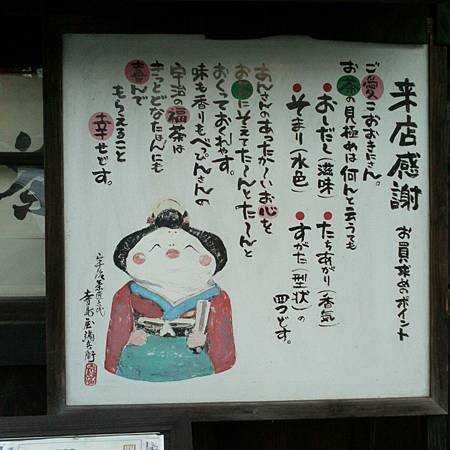 来店感謝 お買求めのポイント
ご愛こおおきにさん。
お茶の見極めは何んと云うても
●おしだし(滋味)●たちあがり(香気)
●そまり(水色)●すがた(型状)の
四つどす。
あんさんのあったか〜いお心を
お茶にそえてた〜んとた〜んと
おくっておくれやす。
味も香りもべっぴんさんの
宇治の福茶は
きっとどなたはんにも
喜んで
もらえること
幸せどす。